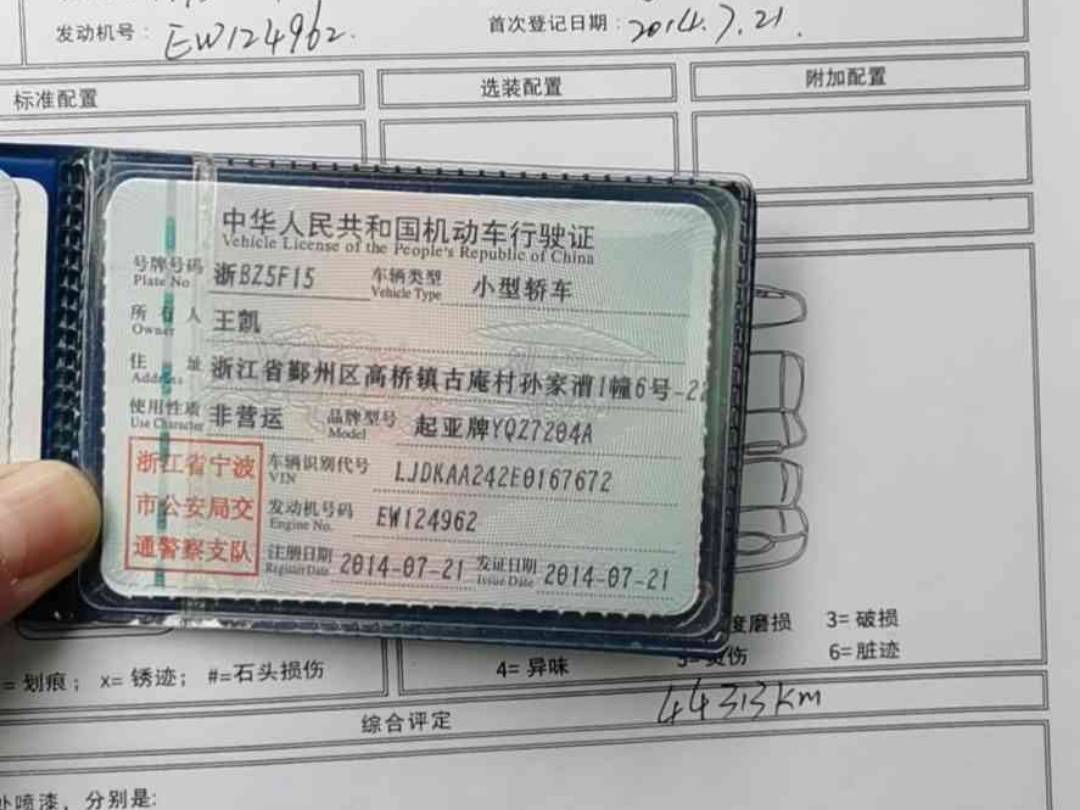 发动机号: EW124962.
首次登记日期: 2014.7.21.
标准配置
选装配置
附加配置
中华人民共和国机动车行驶证
Vehicle License of the People's Republic of China
号牌号码 浙BZ5F15 车辆类型 小型轿车
Plate No. Vehicle Type
所有人 王凯
Owner
住址 浙江省鄞州区高桥镇古庵村孙家漕1幢6号-2
Address
使用性质 非营运 品牌型号 起亚牌YQZ7204A
Use Character Model
浙江省宁波
市公安局交
通警察支队
车辆识别代号 LJDKAA242E0167672
VIN
发动机号码 EW124962
Engine No.
注册日期 2014-07-21 发证日期 2014-07-21
Register Date Issue Date
度磨损 3=破损
=划痕; x=锈迹; #=石头损伤
4=异味 6=脏迹
综合评定
44313km
处喷漆, 分别是: